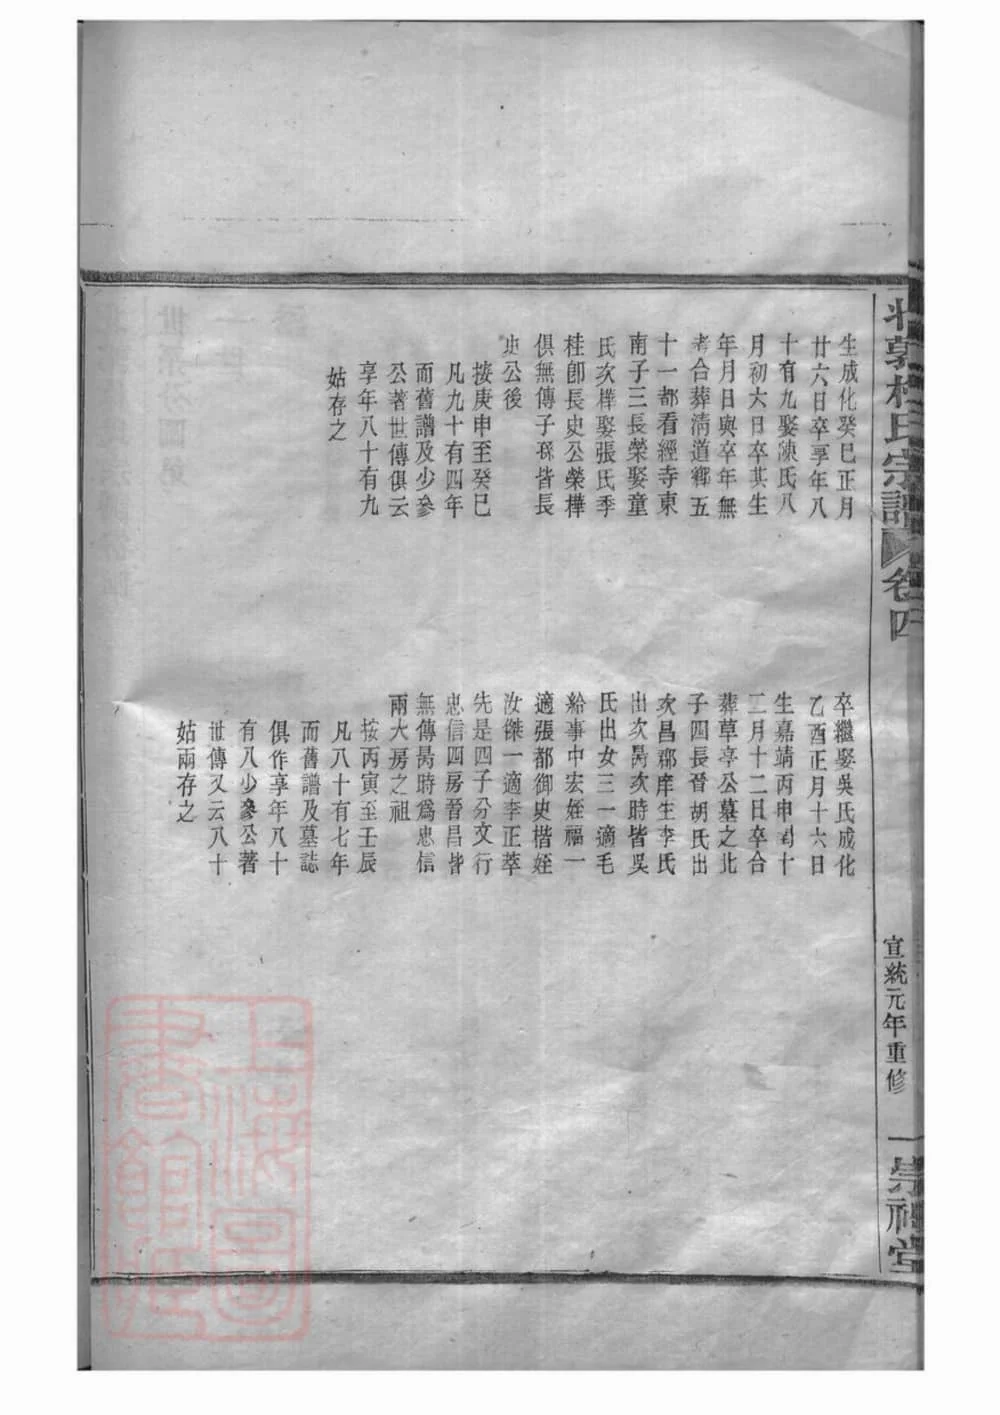 氏宗譜
卷四
生成化癸巳正月
廿六日卒享年八
十有九娶陳氏八
月初六日卒其生
年月日與卒年無
考合葬淸道鄉五
十一都看經寺東
南子三長榮娶童
氏次樺娶張氏季
桂卽長史公榮樺
俱無傳子孫皆長
史公後
按庚申至癸巳
凡九十有四年
而舊譜及少參
公著世傳俱云
享年八十有九
姑存之
卒繼娶吳氏成化
乙酉正月十六日
生嘉靖丙申閏十
二月十二日卒合
葬草亭公墓之北
子四長晉胡氏出
次昌郡庠生李氏
出次昺次時皆吳
氏出女三一適毛
給事中宏姪福一
適張都御史楷姪
汝傑一適李正萃
先是四子分文行
忠信四房晉昌皆
無傳昺時爲忠信
兩大房之祖
按丙寅至壬辰
凡八十有七年
而舊譜及墓誌
俱作享年八十
有八少參公著
世傳又云八十
姑兩存之
宣統元年重修
一
崇祀堂
上海圖書館藏